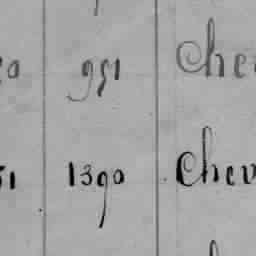 50 951 Che
51 1390 Chev